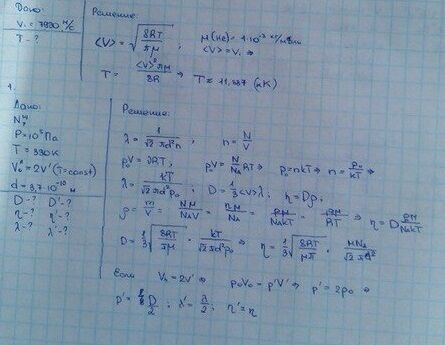 Дано:
V₁ = 7900 м/с
T - ?
Решение:
<V> = √(8RT/πμ) ; μ(He) = 4·10⁻³ кг/моль
<V> = V₁ ⇒
T = <V>²πμ/8R ⇒ T ≈ 11,887 (кК)
1.
Дано:
P = 10⁵ Па
T = 330K
V₀ = 2V' (T = const)
d = 3,7·10⁻¹⁰ м
D - ? D' - ?
η - ? η' - ?
λ - ? λ' - ?
Решение:
λ = 1/(√2 πd²n) , n = N/V
p₀V = νRT, p₀V = N/Nₐ RT ⇒ p₀ = nkT ⇒ n = p₀/kT ⇒
λ = kT/(√2 πd²p₀) ; D = 1/3 <V>λ, η = Dρ,
ρ = m/V = NM/NₐV = nM/Nₐ = p₀M/NₐkT = p₀M/RT ⇒ η = D p₀M/NₐkT
D = 1/3 √(8RT/πμ) · kT/(√2 πd²p₀) ⇒ η = 1/3 √(8RT/μπ) ·
Если V₀ = 2V' ⇒ p₀V₀ = p'V' ⇒ p' = 2p₀ ⇒
D/2 ; λ' = λ/2 ; η' = η